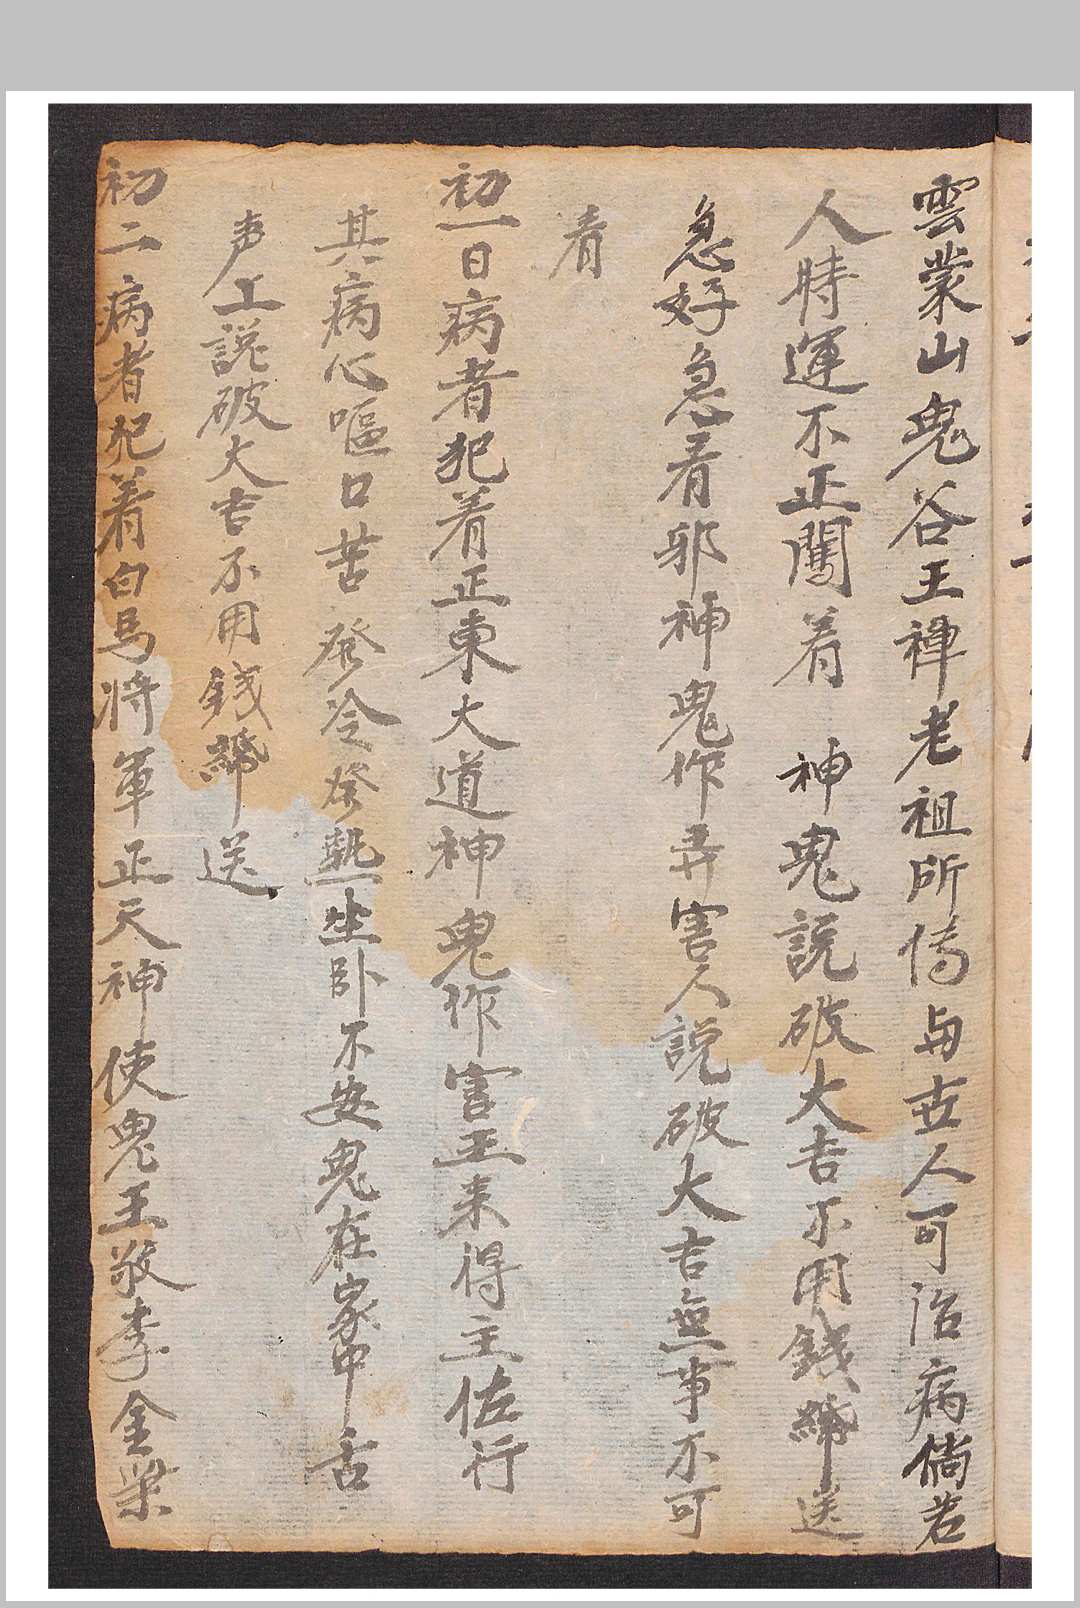 雲蒙山鬼谷王禅老祖所傳与世人可治病倘若
人時運不正闖着 神鬼説破大吉不用錢㡧送
急好急看邪神鬼作弄害人説破大吉無事不可
看
初一日病者犯着正東大道神鬼作害王来得主佐行
其病心嘔口苦發冷發熱坐卧不安鬼在家中古
声上説破大吉不用錢㡧送
初二病者犯着白馬将軍正天神使鬼王敬李金荣